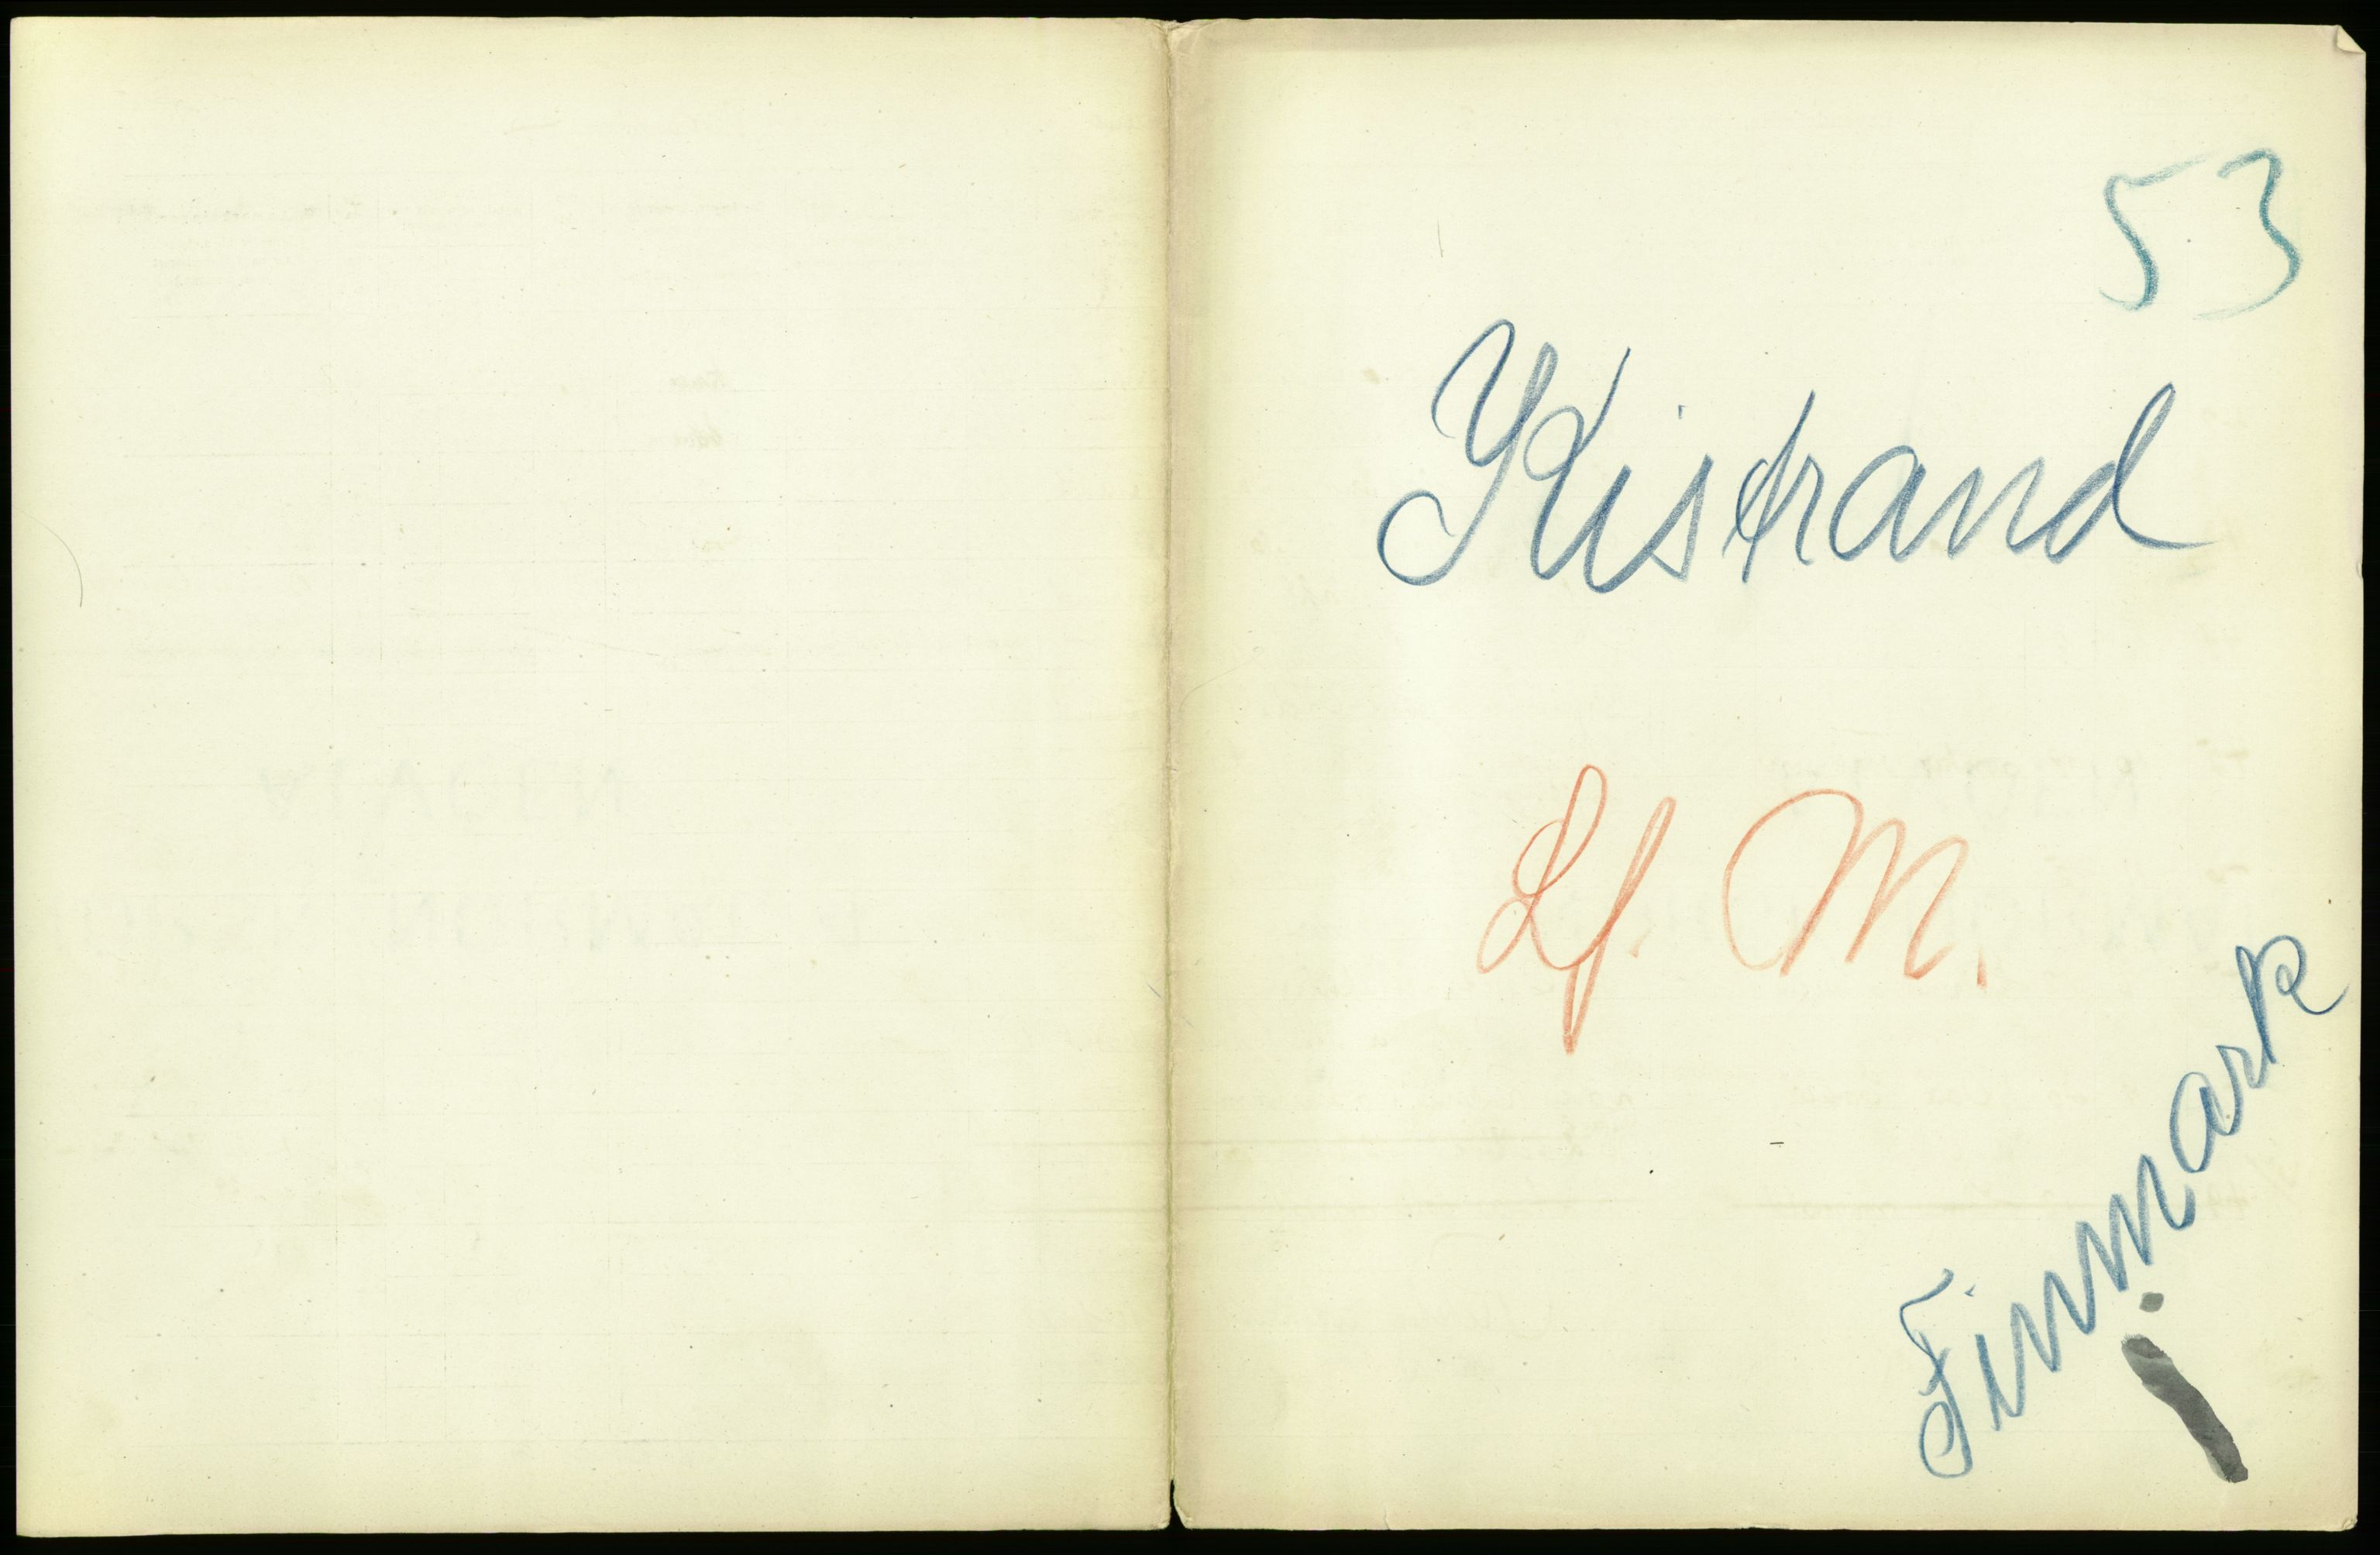 53
Kistrand
Lf. M.
Finmark